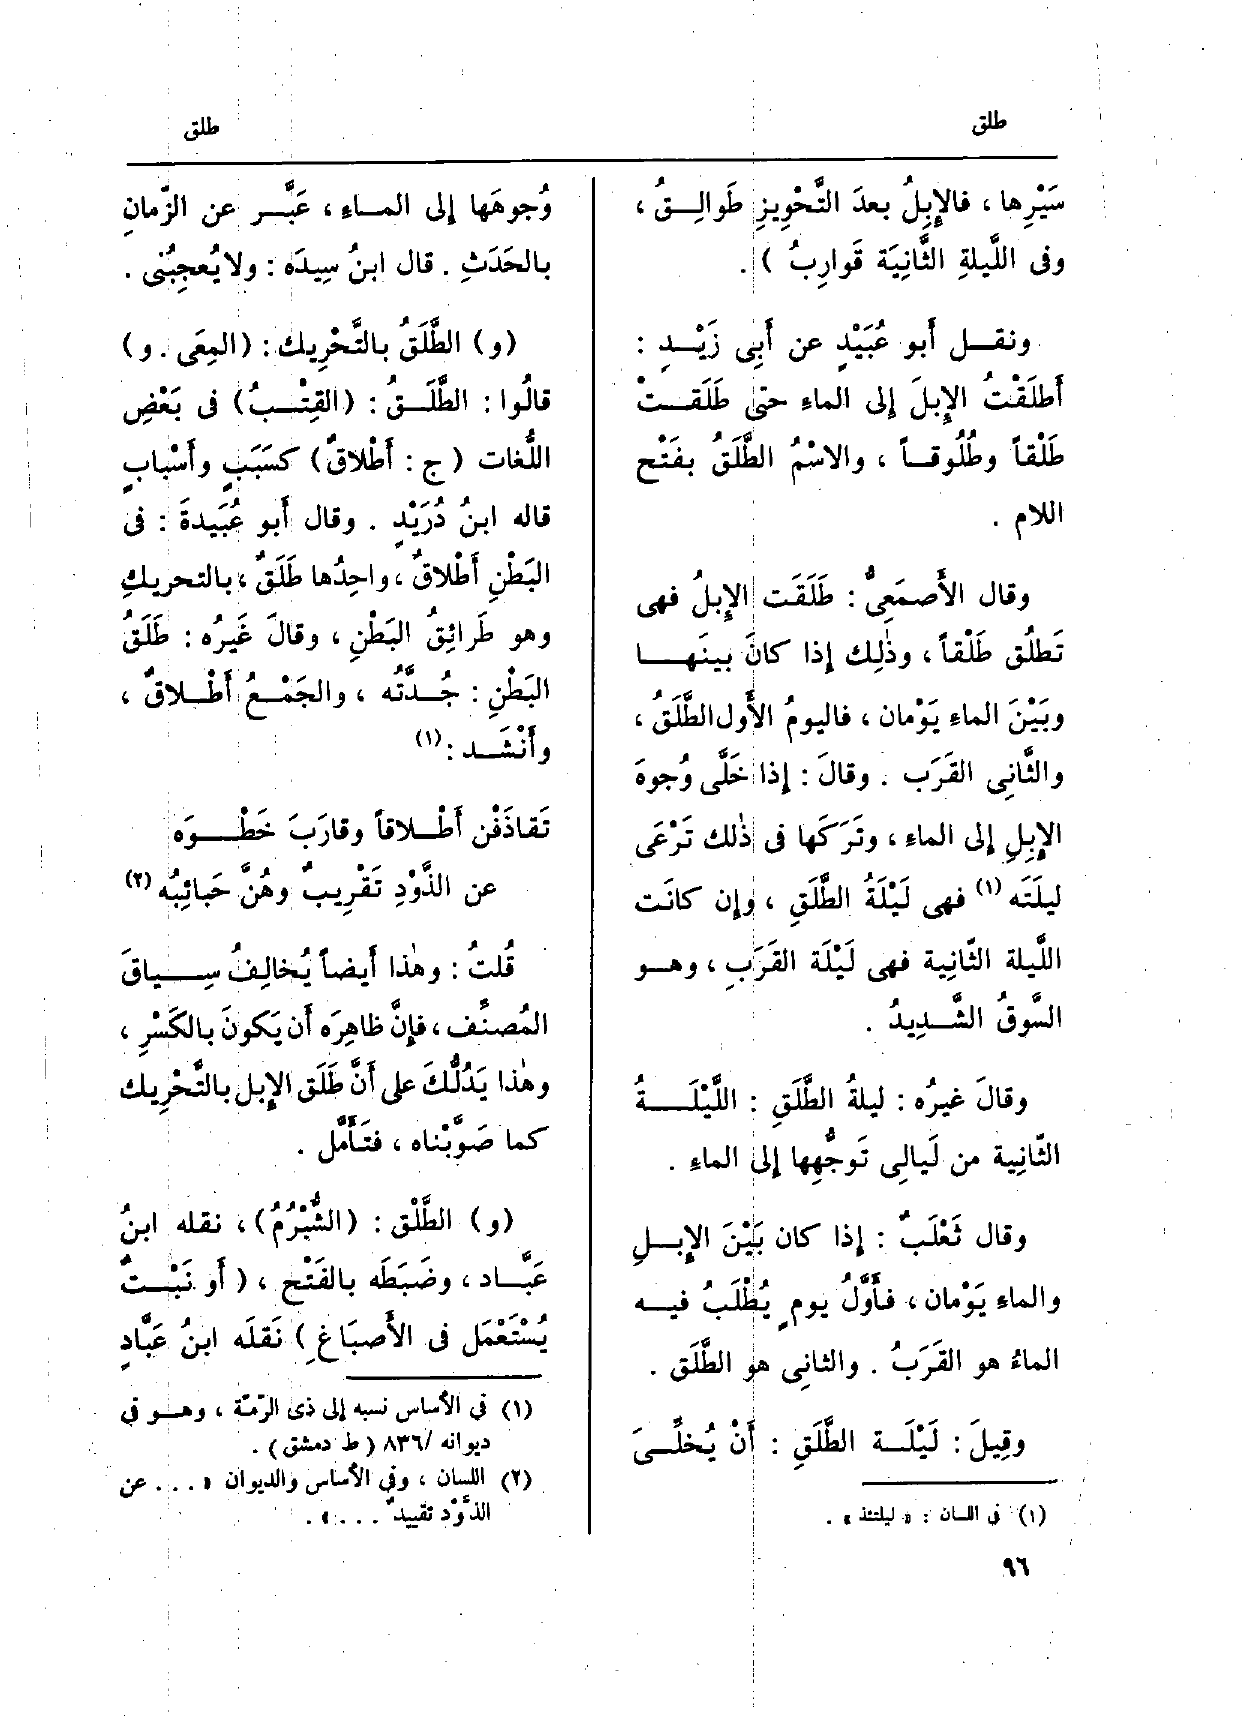 طلق
طلق
سَيْرِها ، فالإِبِلُ بعدَ التَّحْوِيزِ طَوالِقُ ،
وفى اللَّيلةِ الثَّانِيَة قَوارِبُ ) .
ونقل أَبو عُبَيْدٍ عن أَبِى زَيْدٍ :
أَطلَقْتُ الإِبلَ إلى الماءِ حتى طَلَقتْ
طَلْقاً وطُلُوقاً ، والاسْمُ الطَّلَقُ بفَتْح
اللام .
وقال الأَصمَعِىُّ : طَلَقَت الإِبلُ فهى
تَطلُق طَلْقاً ، وذٰلِك إذا كانَ بينَها
وبَيْنَ الماءِ يَوْمان ، فاليومُ الأَول الطَّلَقُ ،
والثَّانِى القَرَب . وقالَ : إذا خَلَّى وُجوهَ
الإِبِلِ إلى الماءِ ، وتَرَكَها فى ذٰلك تَرْعَى
ليلَتَه (١) فهى لَيْلَةُ الطَّلَقِ ، وإن كانَت
اللَّيلة الثَّانِية فهى لَيْلَة القَرَبِ ، وهو
السَّوقُ الشَّدِيدُ .
وقالَ غيرُه : ليلةُ الطَّلَقِ : اللَّيْلَةُ
الثَّانِية من لَيالِى تَوجُّهِها إلى الماءِ .
وقال ثَعْلَبٌ : إذا كان بَيْنَ الإِبلِ
والماءِ يَوْمان ، فأَوَّلُ يومٍ يُطْلَبُ فيه
الماءُ هو القَرَبُ . والثانِى هو الطَّلَق .
وقِيلَ : لَيْلَة الطَّلَقِ : أَنْ يُخلِّىَ
(١) فى اللسان : « ليلتئذ » .
وُجوهَها إلى الماءِ ، عَبَّر عن الزّمانِ
بالحَدَثِ . قال ابنُ سِيدَه : ولا يُعجِبُنى .
(و) الطَّلَقُ بالتَّحْرِيك : (المِعَى . و)
قالُوا : الطَّلَقُ : (القِتْبُ) فى بَعْضِ
اللُّغات (ج : أَطْلاقٌ) كسَبَبٍ وأَسْبابٍ
قاله ابنُ دُرَيْدٍ . وقال أَبو عُبَيدةَ : فى
البَطْنِ أَطْلاقٌ ، واحِدُها طَلَقٌ ، بالتحريكِ
وهو طَرائِقُ البَطْنِ ، وقالَ غَيرُه : طَلَقُ
البَطْنِ : جُدَّتُه ، والجَمْعُ أَطْلاقٌ ،
وأَنْشَد : (١)
تَقاذَفْن أَطْلاقاً وقارَبَ خَطْوَه
عن الذَّوْدِ تَقْرِيبٌ وهُنَّ حَبائِبُه (٢)
قُلتُ : وهٰذا أَيضاً يُخالِفُ سِياقَ
المُصنِّف ، فإنَّ ظاهِرَه أَن يَكونَ بالكَسْرِ ،
وهٰذا يَدُلُّكَ على أَنَّ طَلَق الإِبل بالتَّحْرِيك
كما صَوَّبْناه ، فتَأَمَّل .
(و) الطَّلْق : (الشُّبْرُمُ) ، نقله ابنُ
عَبَّاد ، وضَبَطَه بالفَتْح ، (أَو نَبْتٌ
يُسْتَعْمَل فى الأَصبَاغِ) نَقلَه ابنُ عَبَّادٍ
(١) فى الأساس نسبه إلى ذى الرمّة ، وهو فى
ديوانه /٨٣٦ ( ط دمشق ) .
(٢) اللسان ، وفى الأساس والديوان « ... عن
الذَّوْد تقييدٌ ... » .
٩٦